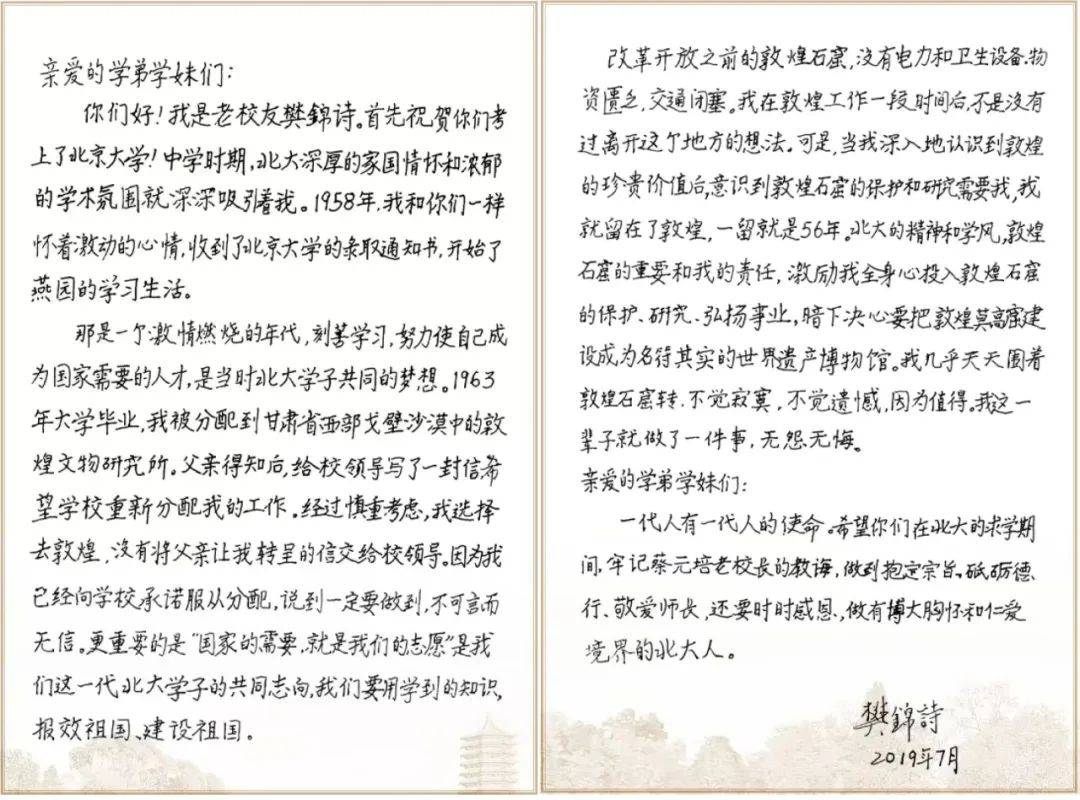 亲爱的学弟学妹们：
你们好！我是老校友樊錦诗。首先祝贺你们考
上了北京大学！中学时期，北大深厚的家国情怀和浓郁
的学术氛围就深深吸引着我。1958年，我和你们一样
怀着激动的心情，收到了北京大学的录取通知书，开始了
燕园的学习生活。
那是一个激情燃烧的年代，刻苦学习，努力使自己成
为国家需要的人才，是当时北大学子共同的梦想。1963
年大学毕业，我被分配到甘肃省西部戈壁沙漠中的敦
煌文物研究所。父亲得知后，给校领导写了一封信希
望学校重新分配我的工作。经过慎重考虑，我选择
去敦煌，没有将父亲让我转呈的信交给校领导。因为我
已经向学校承诺服从分配，说到一定要做到，不可言而
无信。更重要的是“国家的需要，就是我们的志愿”是我
们这一代北大学子的共同志向，我们要用学到的知识，
报效祖国、建设祖国。
改革开放之前的敦煌石窟，没有电力和卫生设备，物
资匮乏，交通闭塞。我在敦煌工作一段时间后，不是没有
过离开这个地方的想法。可是，当我深入地认识到敦煌
的珍贵价值后，意识到敦煌石窟的保护和研究需要我，我
就留在了敦煌，一留就是56年。北大的精神和学风，敦煌
石窟的重要和我的责任，激励我全身心投入敦煌石窟
的保护、研究、弘扬事业，暗下决心要把敦煌莫高窟建
设成为名符其实的世界遗产博物馆。我几乎天天围着
敦煌石窟转，不觉寂寞，不觉遗憾，因为值得。我这一
辈子就做了一件事，无怨无悔。
亲爱的学弟学妹们：
一代人有一代人的使命。希望你们在北大的求学期
间，牢记蔡元培老校长的教诲，做到抱定宗旨、砥砺德
行、敬爱师长，还要时时感恩，做有博大胸怀和仁爱
境界的北大人。
樊錦詩
2019年7月